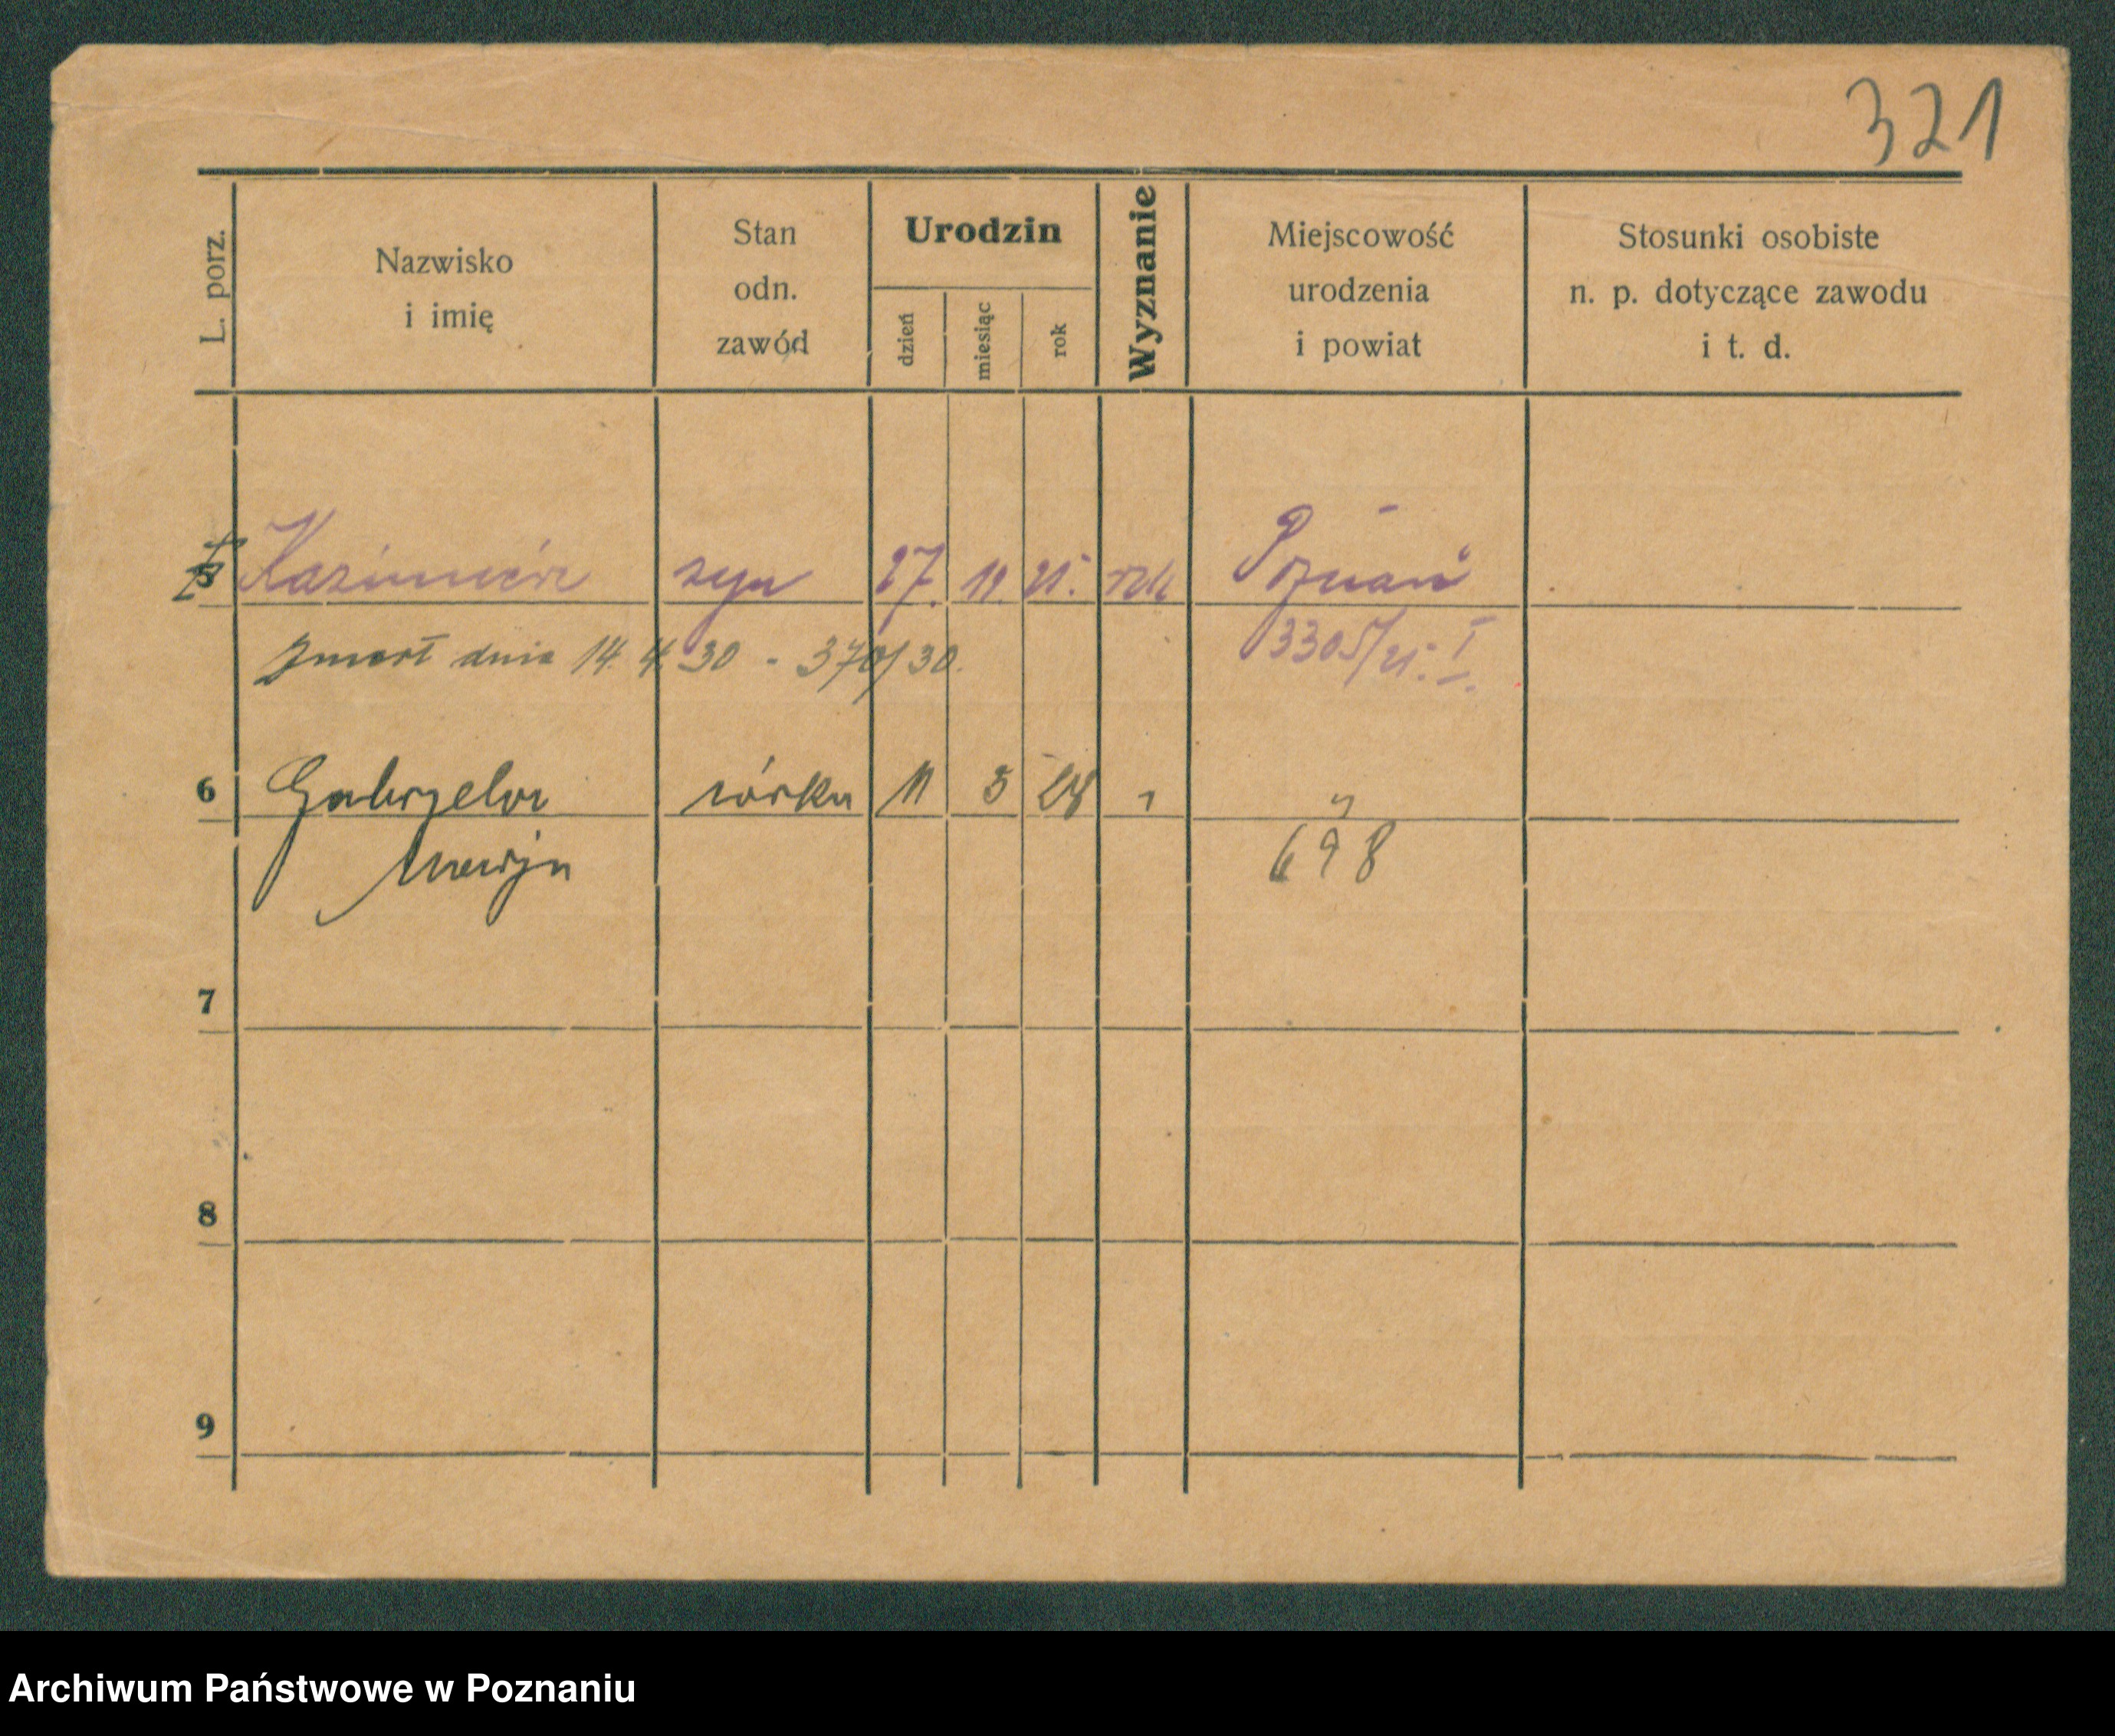 321
L. porz.
Nazwisko
i imię
Stan
odn.
zawód
Urodzin
dzień
miesiąc
rok
Wyznanie
Miejscowość
urodzenia
i powiat
Stosunki osobiste
n. p. dotyczące zawodu
i t. d.
5 Kazimierz syn 27. 11. 21. rzk Poznań
zmarł dnia 14. 4. 30 - 370/30. 3305/21. I.
6 Gabryela córka 11 3 24 " "
Maryja 698
7
8
9
Archiwum Państwowe w Poznaniu